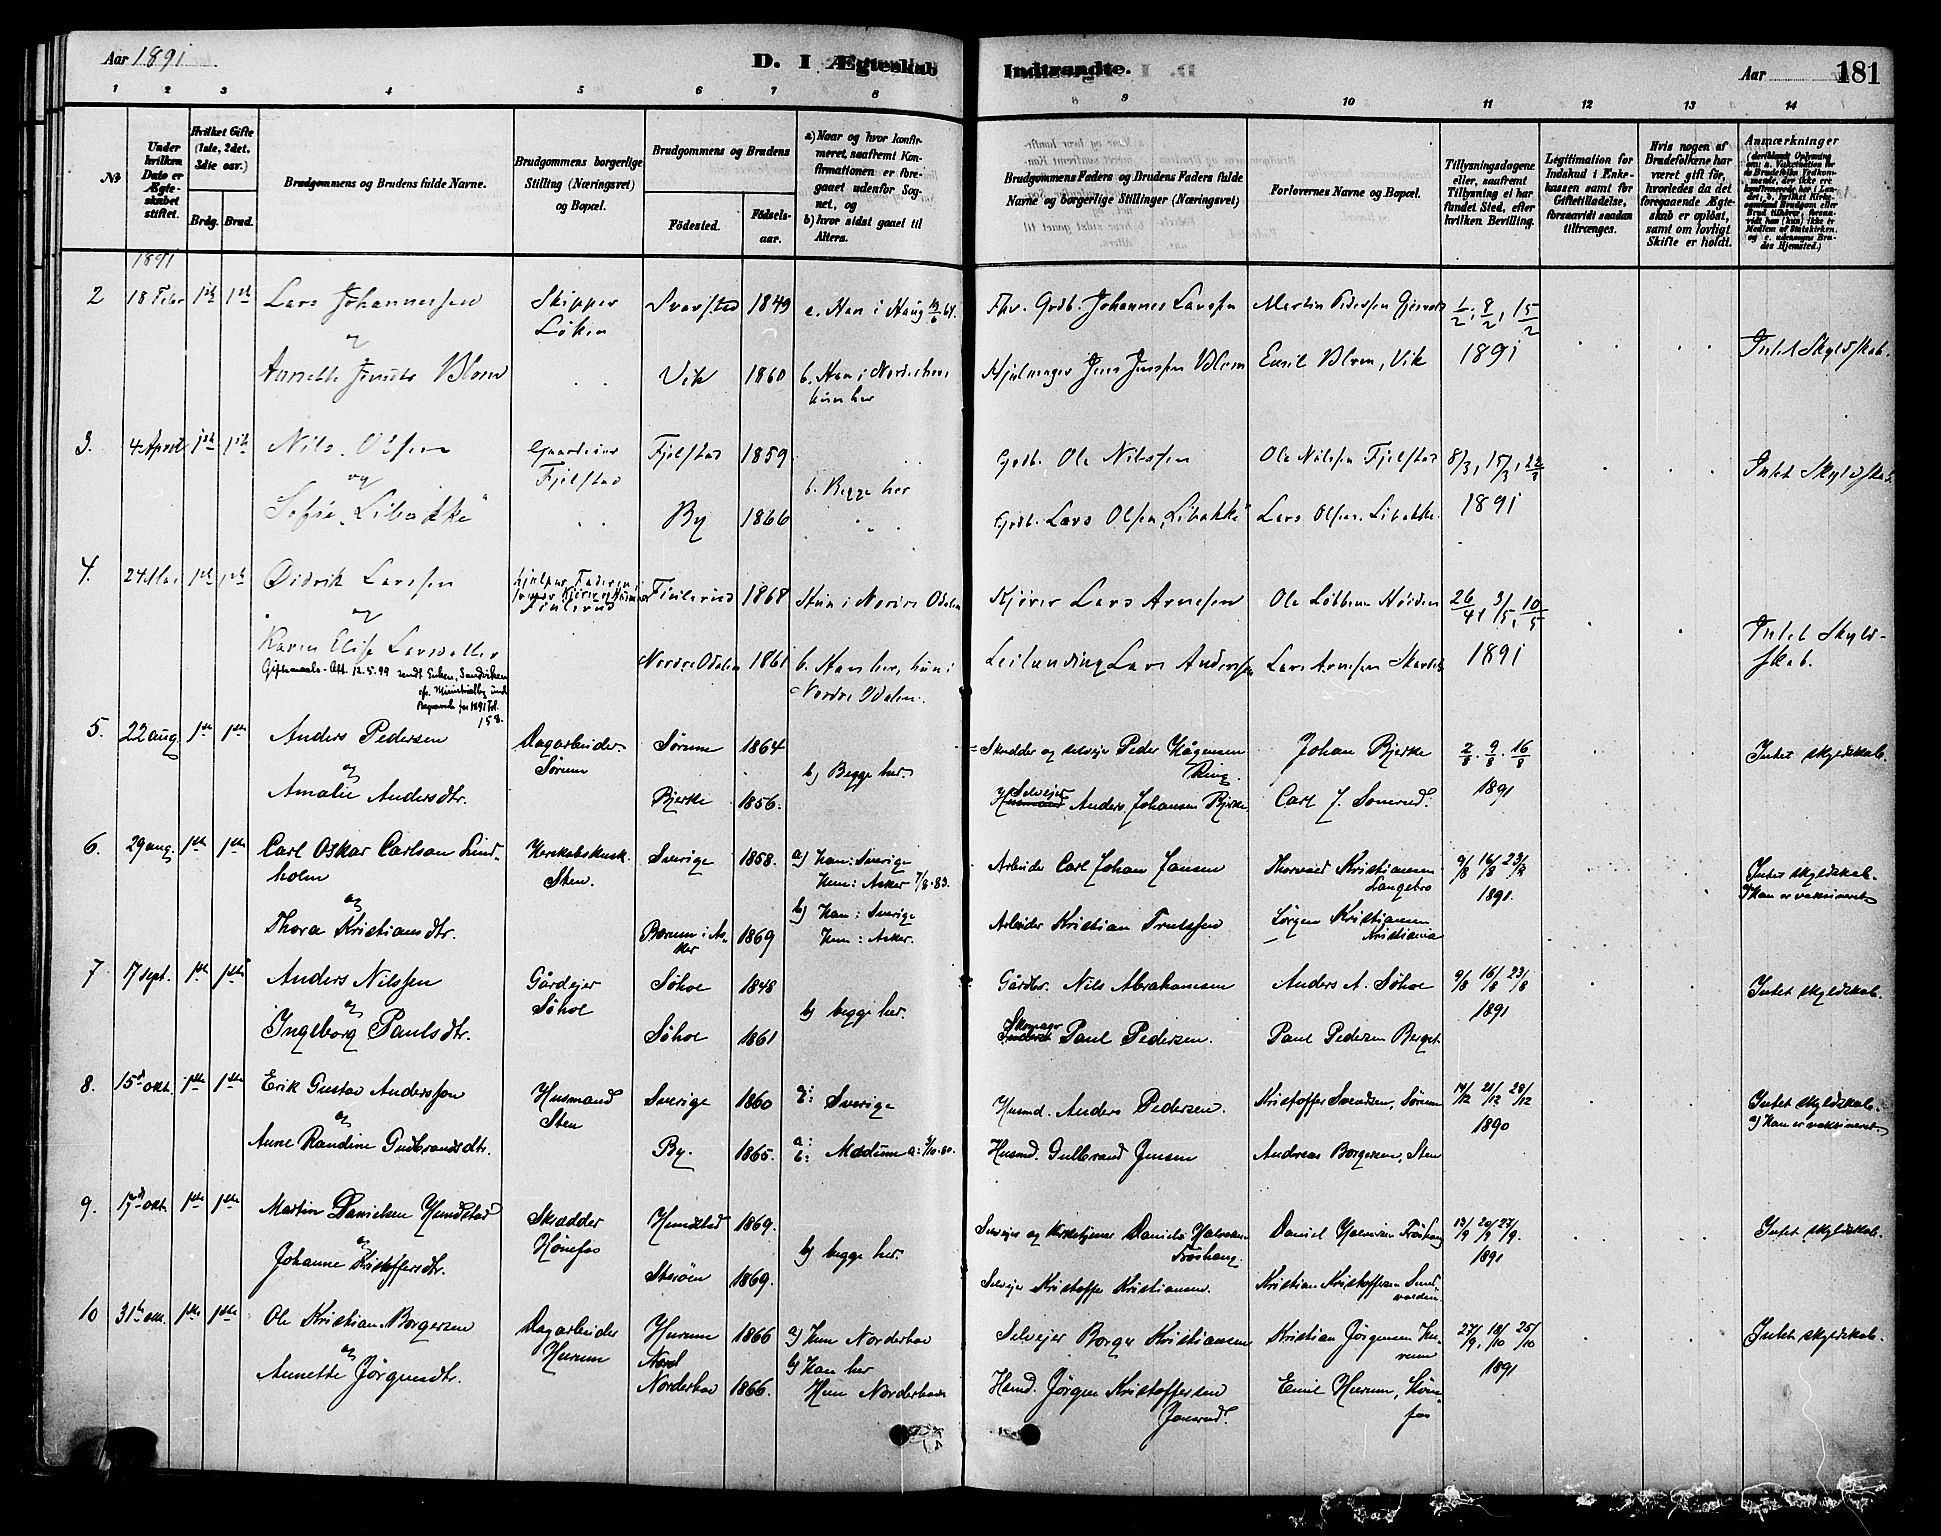 Aar 1891
D. I Ægteskab Indtraadte.
Aar 181
1 2 3 4 5 6 7 8 9 10 11 12 13 14
№
Under hvilken Dato er Ægteskabet stiftet.
Hvilket Gifte (1ste, 2det, 3die osv.)
Brdg. Brud.
Brudgommens og Brudens fulde Navne.
Brudgommens borgerlige Stilling (Næringsvei) og Bopæl.
Brudgommens og Brudens
Födested. Födsels-aar.
a) Naar og hvor konfirmeret, saafremt Konfirmationen er foregaaet udenfor Sognet, og
b) hvor sidst gaaet til Alters.
Brudgommens Faders og Brudens Faders fulde Navne og borgerlige Stillinger (Næringsvei)
Forlovernes Navne og Bopæl.
Tillysningsdagene eller, saafremt Tillysning ei har fundet Sted, efter hvilken Bevilling.
Legitimation for Indskud i Enkekassen samt for Giftetilladelse, forsaavidt saadan tiltrænges.
Hvis nogen af Brudefolkene har været gift för, hvorledes da det foregaaende Ægteskab er oplöst, samt om lovligt Skifte er holdt.
Anmærkninger
1891
2 18 Febr 1ste 1ste Lars Johannessen Skipper Svarstad 1849 a. Han i Haug Fhv. Grdb. Johannes Larssen Martin Pedersen 1/2, 8/2, 15/2
og Løken
Annette Jensdtr Blom Vik 1860 b. Han i Norderhov, Hjulmager Jens Jenssen Blom Emil Blom, Vik 1891 Intet Skyldskab.
hun her
3. 4 April 1ste 1ste Nils Olsen Gaardeier Fjelstad 1859 Grdb. Ole Nilssen Ole Nilssen Fjelstad 8/3, 15/3, 22/3
og Fjelstad b. Begge her Intet Skyldskab.
Sofie "Libakke" By 1866 Grdb. Lars Olsen "Libakke" Lars Olsen Libakke 1891
4. 24 Mai 1ste 1ste Didrik Larssen Finlerud 1868 Hun i Nordre Odalen Kjører Lars Arnesen Ole 26/4, 3/5, 10/5
og Finlerud
Karen Elise Larsdatter Nordre Odalen 1861 b. Han her, hun i Leilænding Lars Anderssen Lars Arnesen 1891 Intet Skyldskab.
Giftemaals-Att. 12.5.99 sendt Enken, Sandviken Nordre Odalen.
5. 22 aug 1ste 1ste Anders Pedersen Dagarbeider Sørum 1864 Skrædder og selvejer Peder Hågensen Ring. Johan Bjerke 2/8. 9/8 16/8
og Sørum b) Begge her. Intet skyldskab.
Amalie Andersdtr. Bjerke 1856. Selvejer Anders Johansen Bjerke Carl J. Somrud. 1891
6. 29 aug. 1ste 1ste Carl Oskar Carlson Lindholm Herskabskusk Sverige 1858. a) Han: Sverige Arbeider Carl Johan Jansen Thorvald Kristiansen Langebro 9/8 16/8 23/8 Intet skyldskab.
og Sten. Hun: Asker 7/8.83. 1891. Han er vaksineret
b) Han: Sverige
Thora Kristiansdtr. Bærum i Asker 1869 Hun: Asker. Arbeider Kristian Trulssen Jørgen Kristiansen Kristiania
7 17 sept. 1ste 1ste Anders Nilssen Gårdejer Søhol 1848 Gårdbr. Nils Abrahamsen Anders A. Søhol 9/8 16/8 23/8 Intet skyldskab.
og Søhol b) begge her. 1891
Ingeborg Paulsdtr. Søhol 1861 Skomager Paul Pedersen. Paul Pedersen Berget
8. 15d okt. 1ste 1ste Erik Gustav Anderssøn Husmand Sverige 1860 Sverige Husmd. Anders Pedersen. Kristoffer Svendsen, Sørum 14/12 21/12 28/12 Intet skyldskab.
og Sten 1890 a) Han er vaksineret
Anne Randine Gudbrandsdtr. By. 1865. a: b: Modum Husmd. Gulbrand Jensen Andreas Borgersen, Sten
9. 17d okt. 1ste 1ste Martin Danielsen Hundstad Skrædder Hundstad 1869. Selvejer og kirketjener Daniel Halvorsen Frøshaug. Daniel Halvorsen Frøshaug 13/9 20/9 27/9. Intet skyldskab.
og Hønefos b) begge her. 1891
Johanne Kristoffersdtr. Storøen 1869. Selvejer Kristoffer Kristiansen. Kristian Kristoffersen
10 31te okt. 1ste 1ste Ole Kristian Borgersen Dagarbeider Hurum 1866 a) Hun Norderhov Selvejer Borger Kristiansen Kristian Jørgensen Hurum 27/9, 18/10 25/10 Intet skyldskab.
og Hurum b) Han her 1891
Annette Jørgensdtr. Norderhov 1866. Hun Norderhov Husmd. Jørgen Kristoffersen Emil Hurum, Hønefos